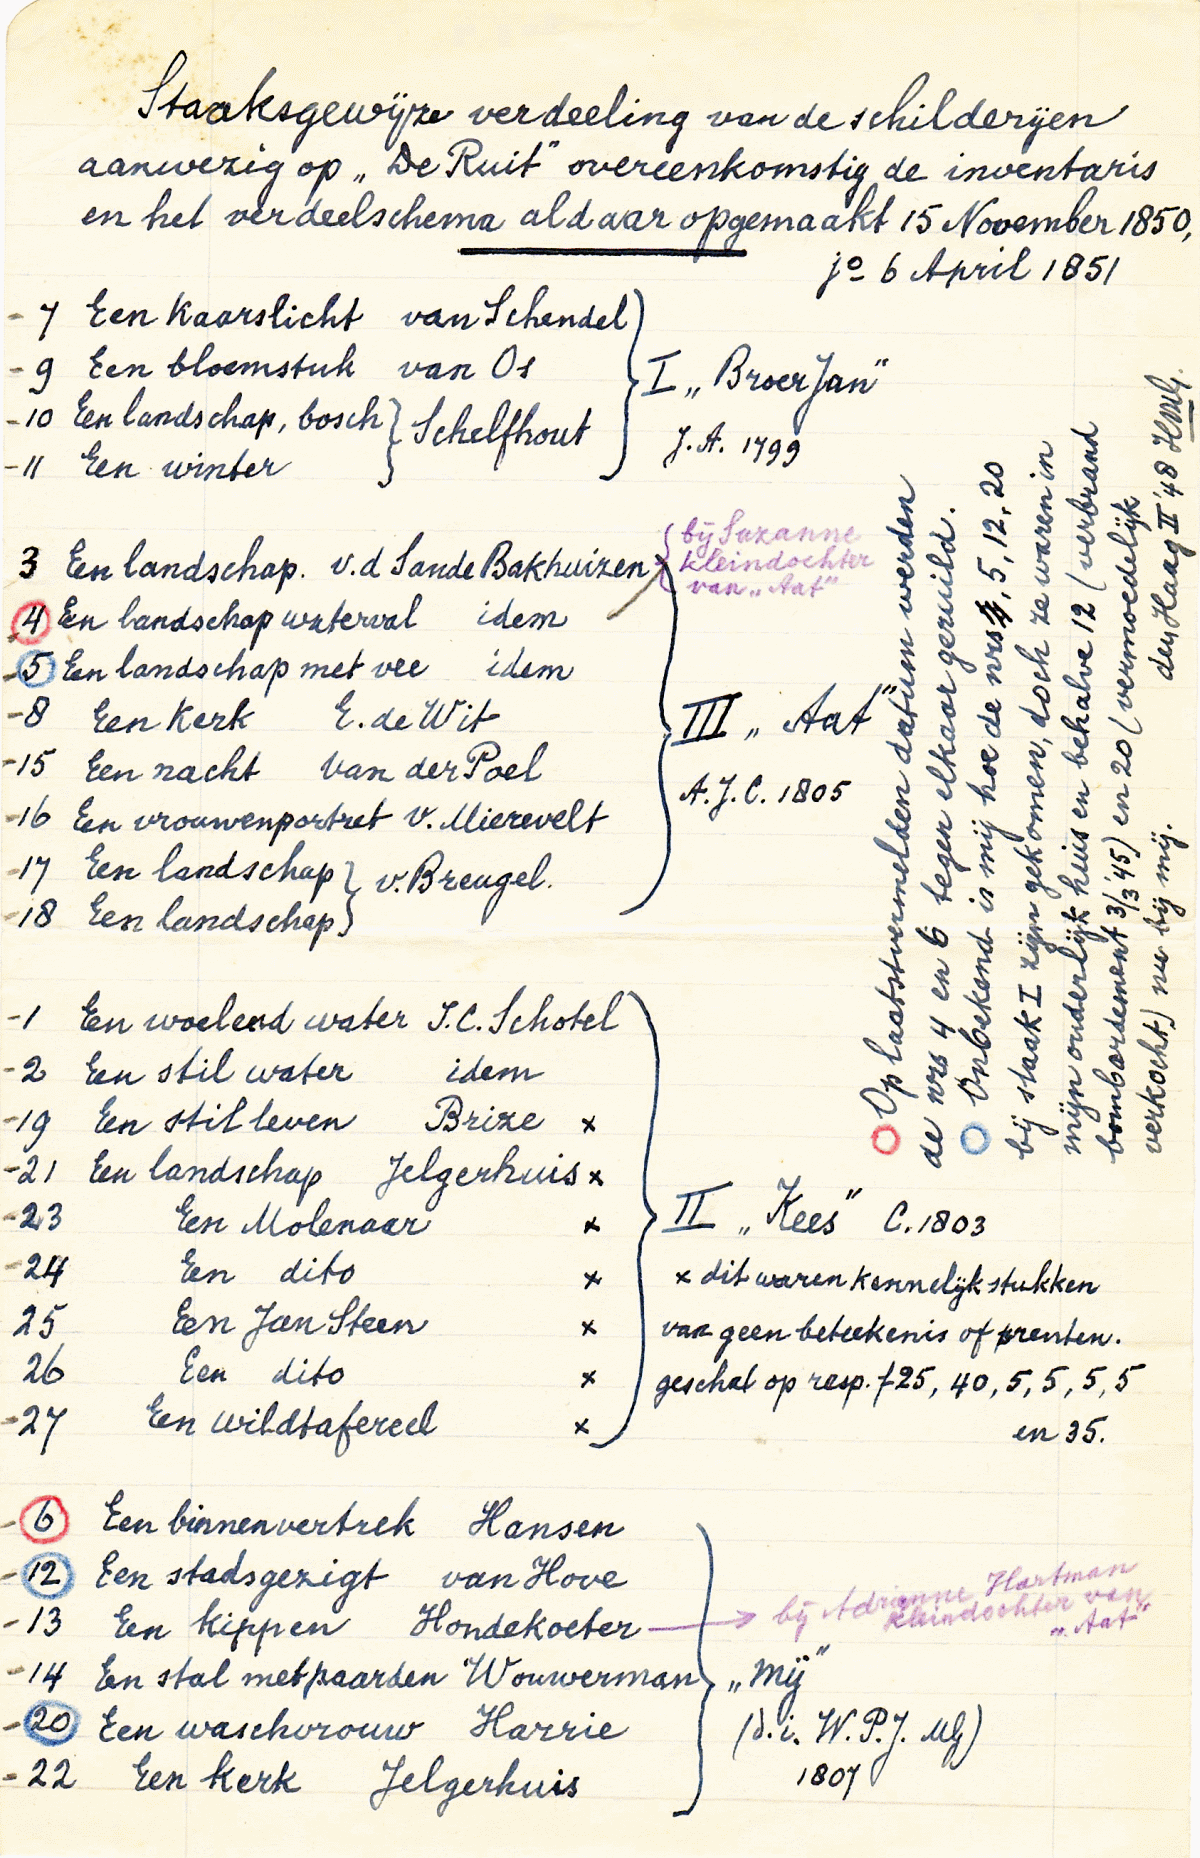 Staaksgewijze verdeeling van de schilderijen
aanwezig op „De Ruit" overeenkomstig de inventaris
en het verdeelschema aldaar opgemaakt 15 November 1850,
jo 6 April 1851
- 7 Een Kaarslicht van Schendel
- 9 Een bloemstuk van Os
- 10 Een landschap, bosch } Schelfhout
- 11 Een winter
I „Broer Jan"
J.A. 1799
3 Een landschap. v.d Sande Bakhuizen x
bij Suzanne
kleindochter
van „Aat"
4 Een landschap waterval idem
- 5 Een landschap met vee idem
- 8 Een Kerk E. de Wit
- 15 Een nacht van der Poel
- 16 Een vrouwenportret v. Mierevelt
- 17 Een landschap } v. Breugel.
- 18 Een landschap
III „Aat"
A.J.C. 1805
- 1 Een woelend water J.C. Schotel
- 2 Een stil water idem
- 19 Een stilleven Brize x
- 21 Een landschap Jelgerhuis x
- 23 Een Molenaar x
- 24 Een dito x
25 Een Jan Steen x
26 Een dito x
- 27 Een wildtafereel x
II „Kees" C. 1803
x dit waren kennelijk stukken
van geen beteekenis of prenten.
geschat op resp. f 25, 40, 5, 5, 5, 5
en 35.
- 6 Een binnenvertrek Hansen
- 12 Een stadsgezigt van Hove
- 13 Een kippen Hondekoeter
bij Adrienne Hartman
kleindochter van
„Aat"
- 14 Een stal met paarden Wouwerman
- 20 Een waschvrouw Harrie
- 22 Een kerk Jelgerhuis
„Mij"
(d.i. W.P.J.
1807
O Op laatstvermelden datum werden
de nrs 4 en 6 tegen elkaar geruild.
O Onbekend is mij hoe de nrs 5, 12, 20
bij staak I zijn gekomen, doch ze waren in
mijn ouderlijk huis en behalve 12 (verbrand
bombardement 3/3 '45) en 20 (vermoedelijk
verkocht) nu bij mij.
den Haag II '48